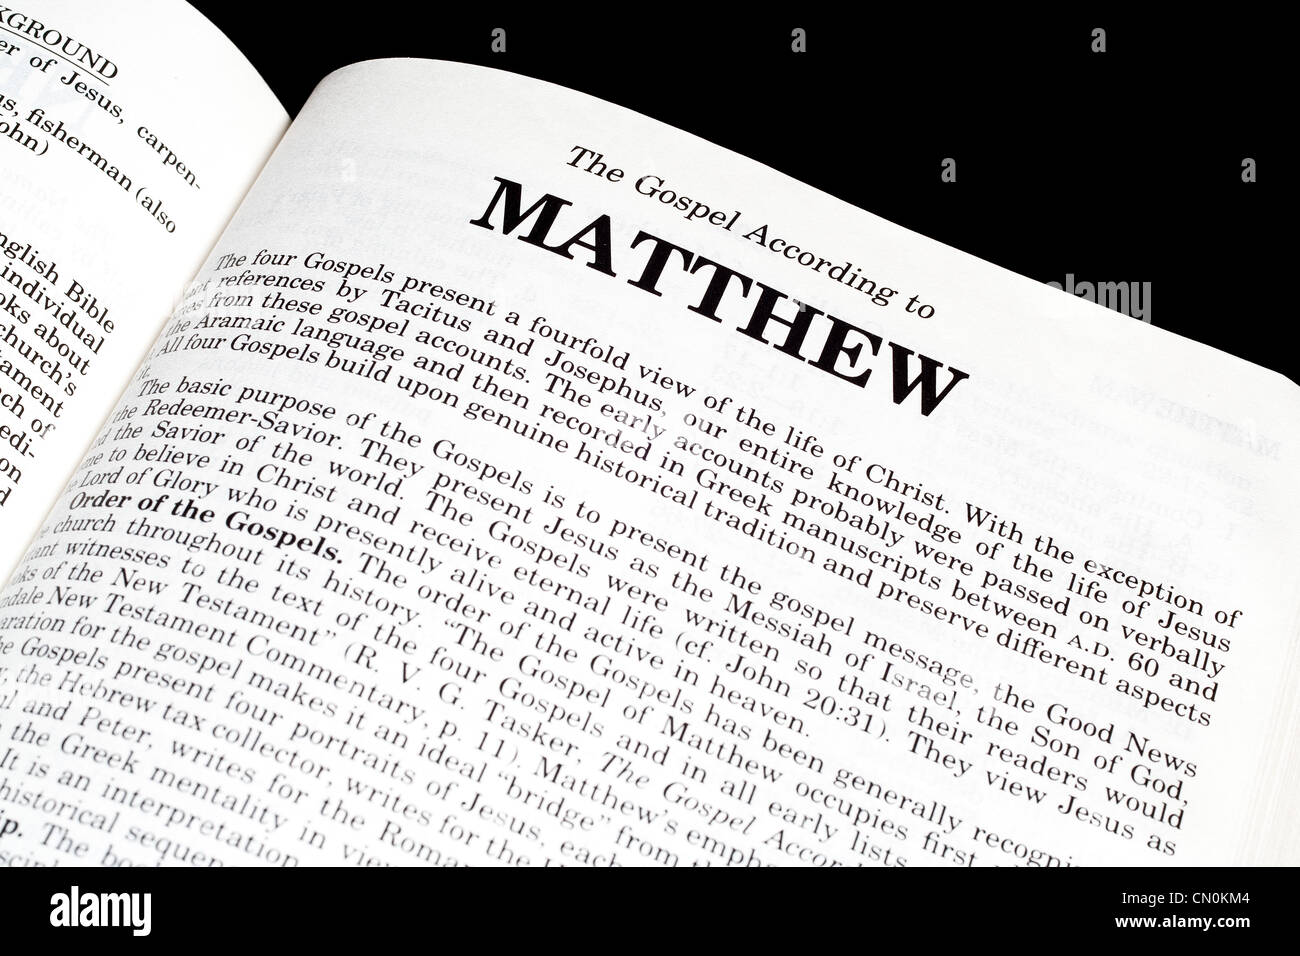 KGROUND
er of Jesus, carpen-
us, fisherman (also
ohn)
nglish Bible
individual
oks about
hurch's
tament
ach of
edi-
on
d
The Gospel According to
MATTHEW
The four Gospels present a fourfold view of the life of Christ. With the exception of
ant references by Tacitus and Josephus, our entire knowledge of the life of Jesus
from these gospel accounts. The early accounts probably were passed on verbally
the Aramaic language and then recorded in Greek manuscripts between A.D. 60 and
All four Gospels build upon genuine historical tradition and preserve different aspects
it.
The basic purpose of the Gospels is to present the gospel message, the Good News
the Redeemer-Savior. They present Jesus as the Messiah of Israel, the Son of God,
the Savior of the world. The Gospels were written so that their readers would
me to believe in Christ and receive eternal life (cf. John 20:31). They view Jesus as
Lord of Glory who is presently alive and active in heaven.
Order of the Gospels. The order of the Gospels has been generally recogni
church throughout its history. "The Gospel of Matthew occupies first
tant witnesses to the text of the four Gospels and in all early lists
oks of the New Testament" (R. V. G. Tasker, The Gospel Accord
ndale New Testament Commentary, p. 11). Matthew's emph
aration for the gospel makes it an ideal "bridge" from
he Gospels present four portraits of Jesus, each
the Hebrew tax collector, writes for the
ul and Peter, writes for the Roman
the Greek mentality in view
It is an interpretation
historical sequen
ip. The boo
alamy
Image ID: CN0KM4
www.alamy.com